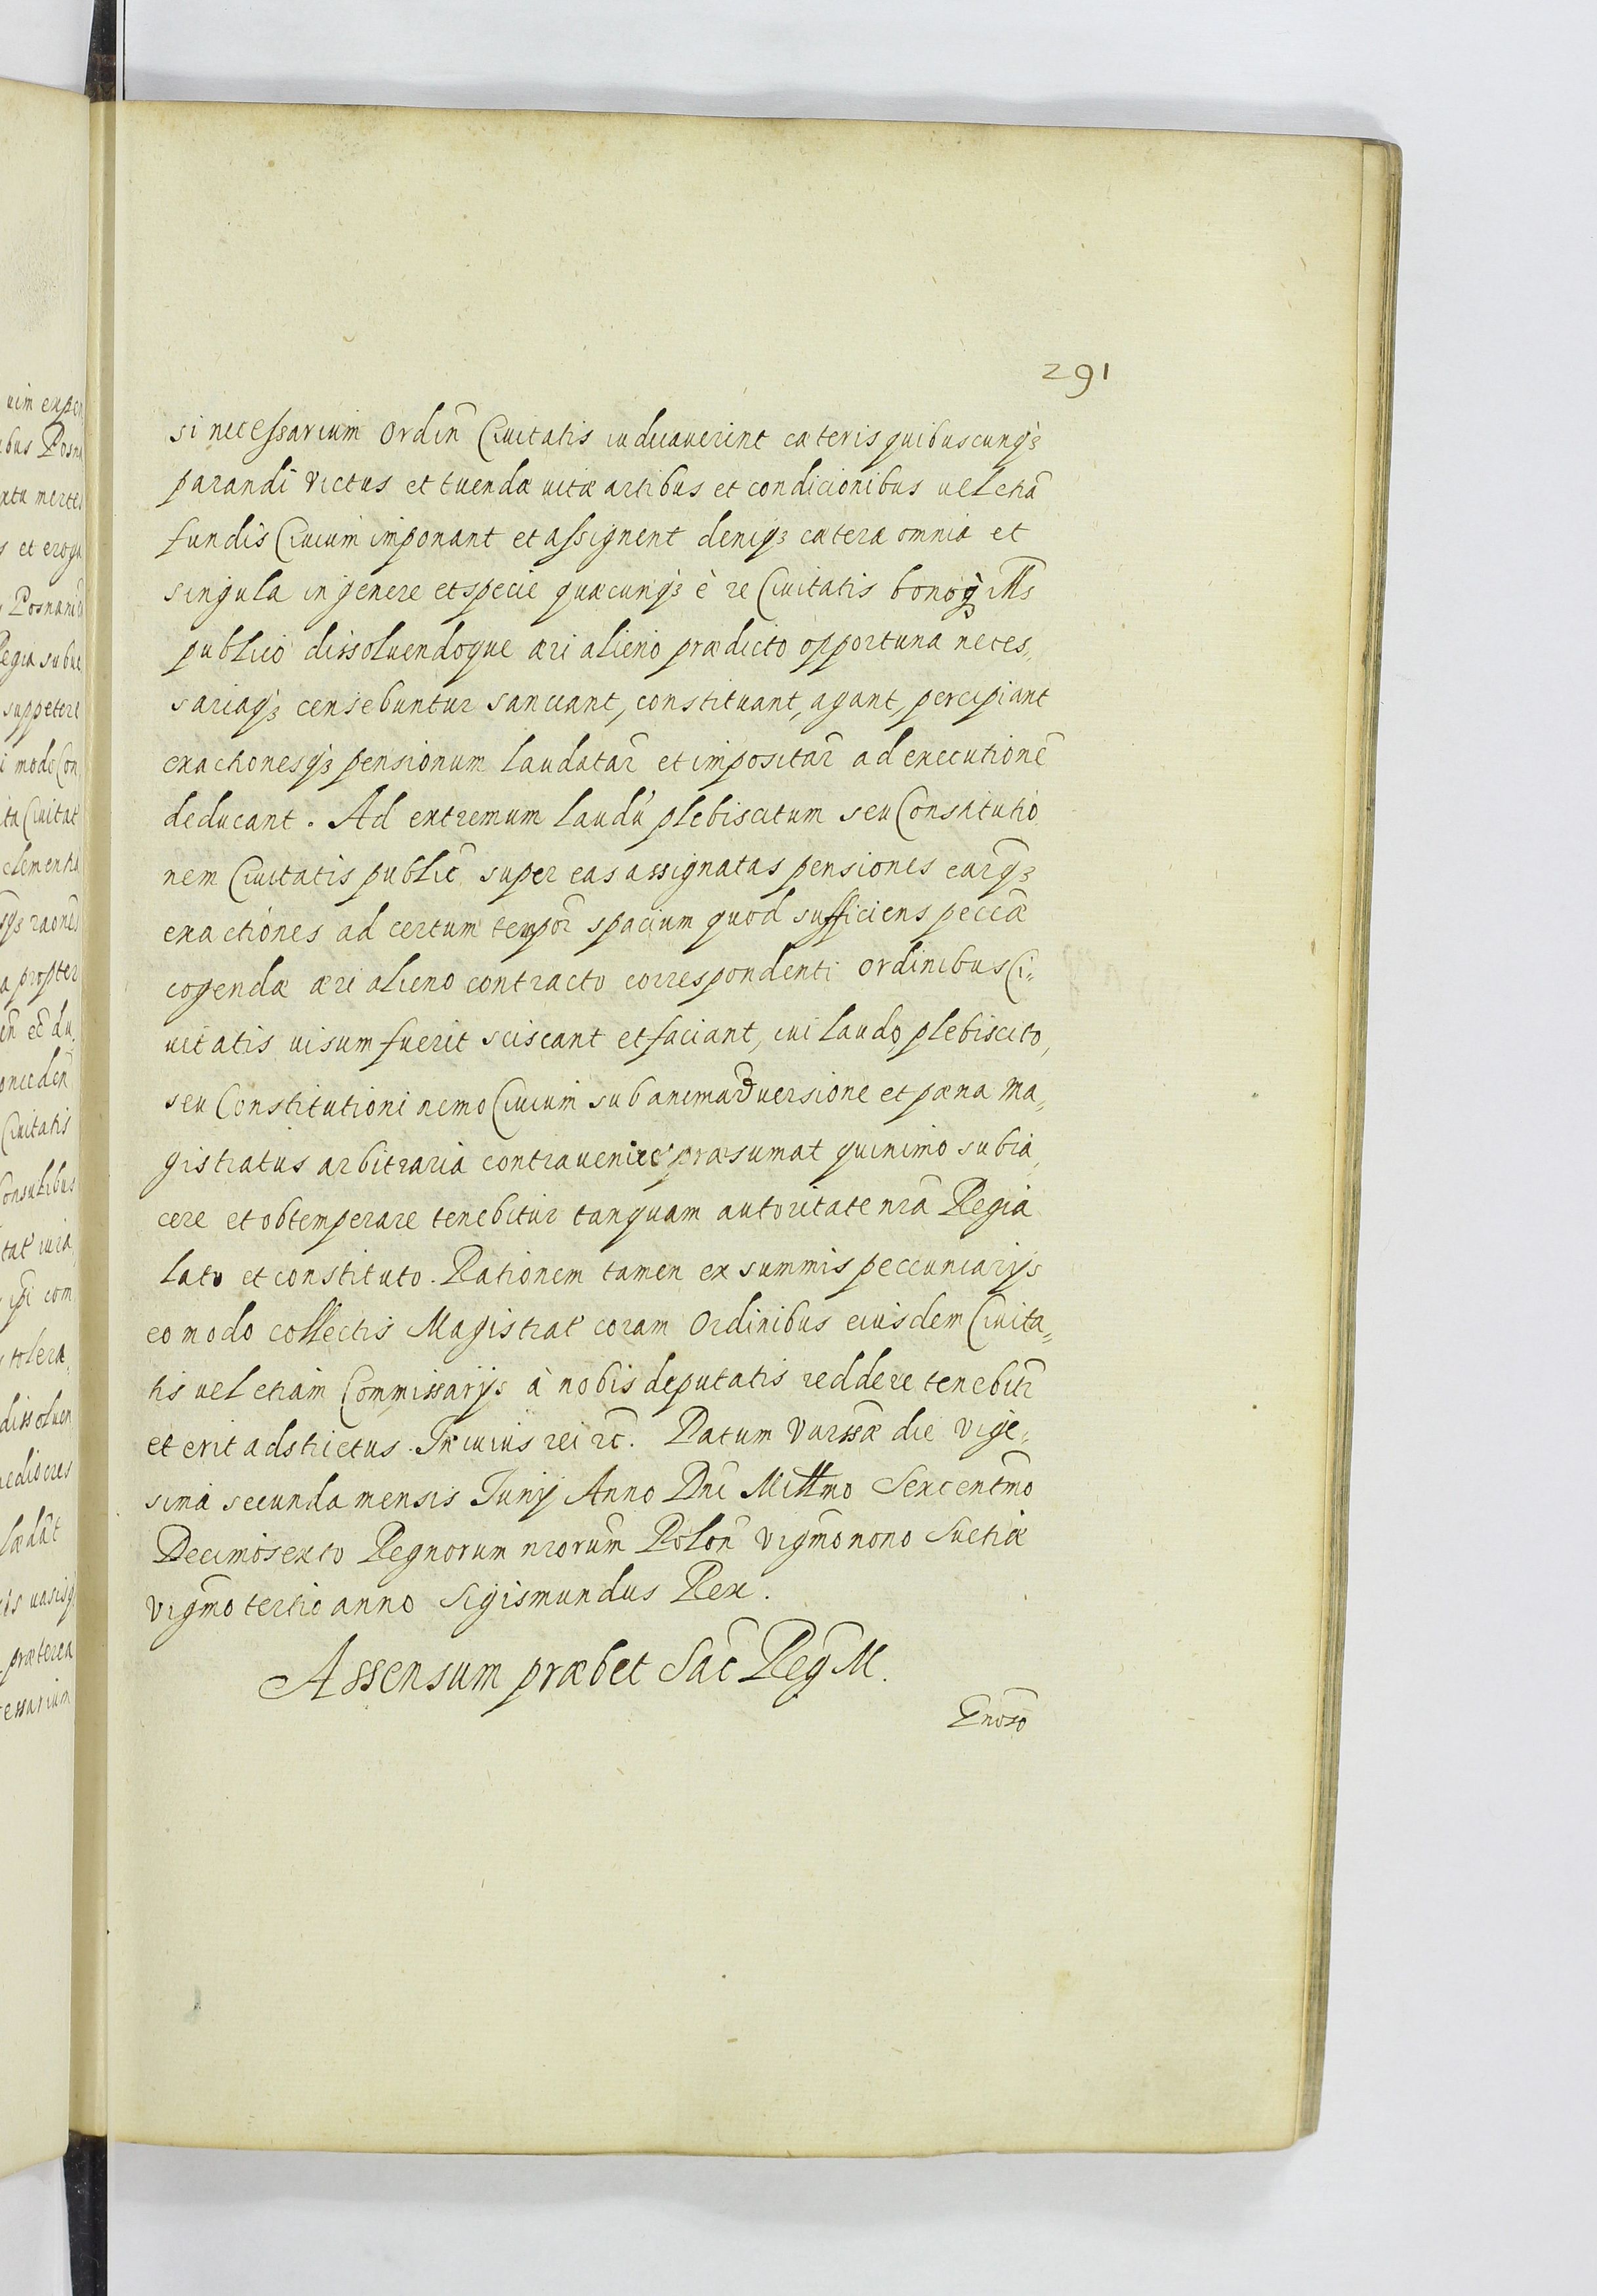 291
si necessarium Ordiñ Civitatis iudicaverint cæteris quibuscunqȝ
parandi victus et tuendæ vitæ artibus et condicionibus vel etiã
fundis Civium imponant et assignent deniqȝ cætera omnia et
singula in genere et specie quæcunqȝ è re Civitatis bonoqȝ illis
publico dissoluendoque æri alieno prædicto opportuna neces„
sariaqȝ censebuntur sanciant, constituant, agant, percipiant
exactionesqȝ pensionum laudatar̃ et impositar̃ ad executionẽ
deducant. Ad extremum laudũ plebiscitum seu Constitutio
nem Civitatis public̃ super eas assignatas pensiones earqȝ
exactiones ad certum tempor̃ spacium quod sufficiens peccæ
cogendæ æri alieno contracto correspondenti Ordinibus Ci„
uitatis uisum fuerit sciscant et faciant, cui laudo, plebiscito,
seu Constitutioni nemo Civium sub animaduersione et pæna Ma„
gistratus arbitraria contravenire præsumat quinimo subia„
cere et obtemperare tenebitur tanquam autoritate nrã Regia
lato et constituto. Rationem tamen ex summis peccuniarijs
eo modo collectis Magistrat' coram Ordinibus eiusdem Civita„
tis vel etiam Commissarijs à nobis deputatis reddere tenebitr̃
et erit adstrictus. In cuius rei rc̃. Datum Varssæ die vige„
sima secunda mensis Junij Anno Dnĩ Millmo Sexcentmõ
Decimosexto Regnorum nrorum Poloñ vigmõ nono Suetiæ
vigmõ tertio anno Sigismundus Rex.
Assensum præbet Sac̃ Reg̃ M.